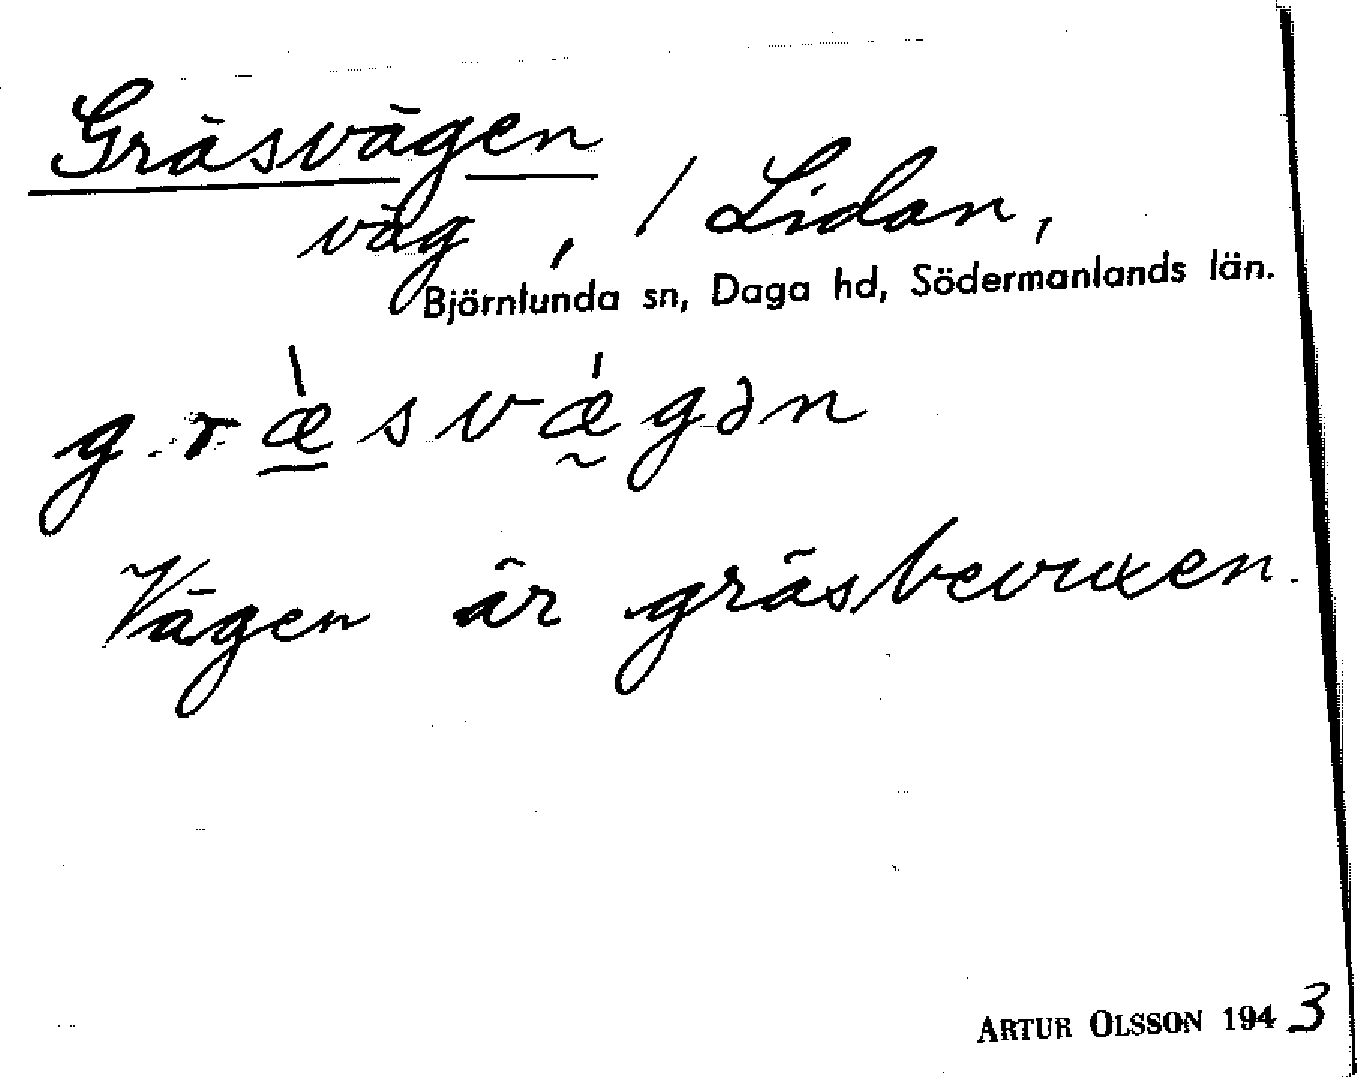 Gräsvägen
väg, / Lidan,
Björnlunda sn, Daga hd, Södermanlands län.
græ̱̀svǽ̰gən
Vägen är gräsbevuxen.
ARTUR OLSSON 1943